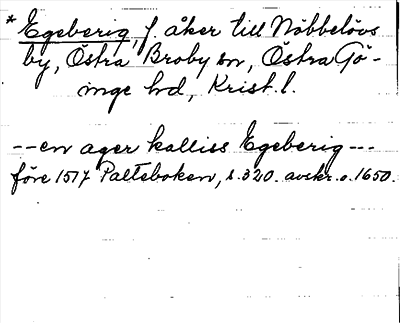 * Egeberig, f. åker till Nöbbelövs
by, Östra Broby sn, Östra Gö-
inge hd, Krist. l.
--en ager kalliss Egeberig---
före 1517 Palteboken, s. 320. avskr. o. 1650.